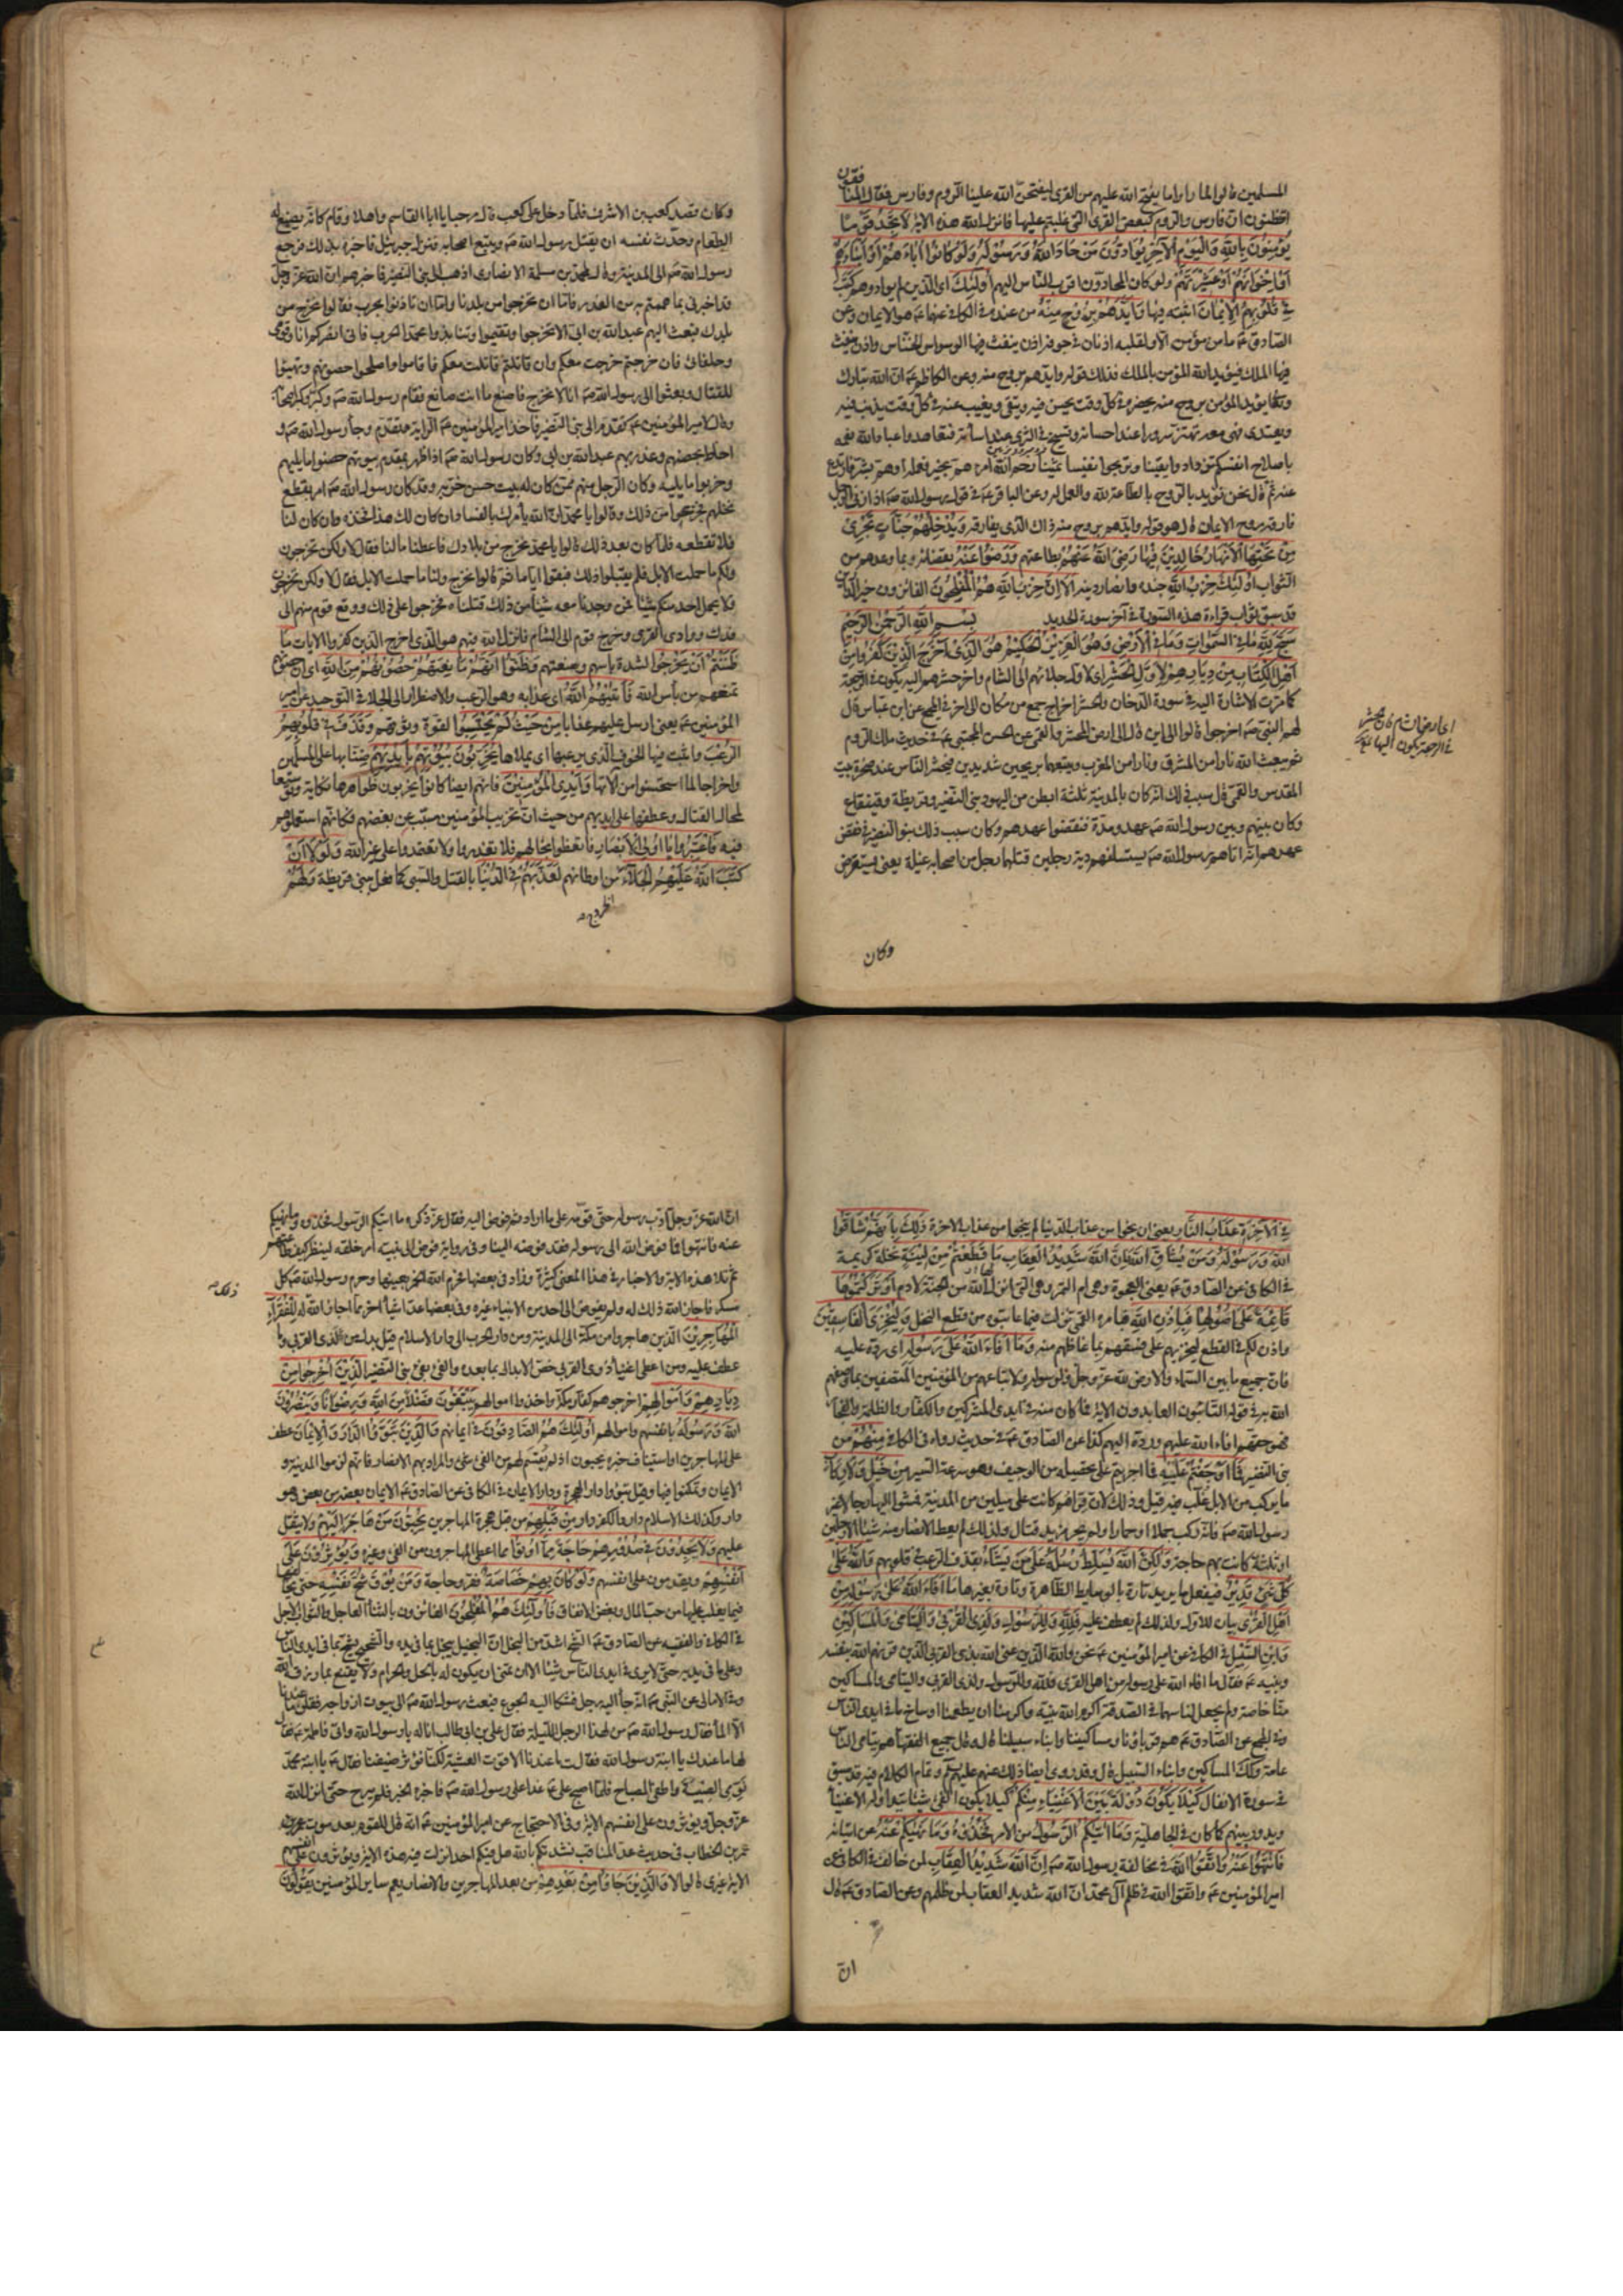 المسلمين قالوا لما راوا ما يفتح الله عليهم من القرى ليفتحن الله علينا الروم وفارس فقال المنافقون
اتظنون ان فارس والروم كبعض القرى التي غلبتم عليها فانزل الله هذه الاية لا تجد قوما
يؤمنون بالله واليوم الآخر يوادون من حاد الله ورسوله ولو كانوا اباءهم او ابناءهم
او اخوانهم او عشيرتهم ولو كان المحادون اقرب الناس اليهم اولئك اي الذين لم يوادوهم كتب
في قلوبهم الايمان اثبته فيها وايدهم بروح منه من عنده في الكافي عنهما ع هو الايمان وعن
الصادق ع ما من مؤمن الا ولقلبه اذنان في جوفه اذن ينفث فيها الوسواس الخناس واذن ينفث
فيها الملك فيؤيد الله المؤمن بالملك فذلك قوله وايدهم بروح منه وعن الكاظم ع ان الله تبارك
وتعالى ايد المؤمن بروح منه يحضره في كل وقت يحسن فيه ويتقى ويغيب عنه في كل وقت يذنب فيه
ويعتدى فهي معه تهتز سرورا عند احسانه وتسيخ في الثرى عند اساءته فتعاهدوا عباد الله نعمه
باصلاح انفسكم تزدادوا يقينا وتربحوا نفيسا ثمينا رحم الله امرء هم بخير فعمله او هم بشر فارتدع
عنه ثم قال نحن نؤيد بالروح بالطاعة لله والعمل له وعن الباقر ع في قول رسول الله ص اذا زنى الرجل
فارقه روح الايمان قال هو قوله وايدهم بروح منه ذاك الذي يفارقه ويدخلهم جنات تجرى
من تحتها الانهار خالدين فيها رضي الله عنهم بطاعتهم ورضوا عنه بقضائه وبما وعدهم من
الثواب اولئك حزب الله جنده وانصار دينه الا ان حزب الله هم المفلحون الفائزون بخير الدارين
قد سبق ثواب قراءة هذه السورة في آخر سورة الحديد بسم الله الرحمن الرحيم
سبح لله ما في السموات وما في الارض وهو العزيز الحكيم هو الذي اخرج الذين كفروا من
اهل الكتاب من ديارهم لاول الحشر اي لاول جلائهم الى الشام واخر حشرهم اليه يكون في الرجعة
كما مرت الاشارة اليه في سورة الدخان والحشر اخراج جمع من مكان الى اخر في المجمع عن ابن عباس قال
لهم النبي ص اخرجوا قالوا الى اين قال الى ارض المحشر والقمي عن الحسن المجتبى ع في حديث ملك الروم
ثم يبعث الله نارا من المشرق ونارا من المغرب ويتبعهما بريحين شديدين فيحشر الناس عند صخرة بيت
المقدس والقمي قال سبب ذلك انه كان بالمدينة ثلثة ابطن من اليهود بنى النضير وقريظة وقينقاع
وكان بينهم وبين رسول الله ص عهد ومدة فنقضوا عهدهم وكان سبب ذلك بنو النضير في نقض
عهدهم انه اتاهم رسول الله ص يستسلفهم دية رجلين قتلهما رجل من اصحابه غيلة يعنى يستقرض
وكان
وكان قصد كعب بن الاشرف فلما دخل على كعب قال مرحبا يا ابا القاسم واهلا وقام كانه يصنع له
الطعام وحدث نفسه ان يقتل رسول الله ص ويتبع اصحابه فنزل جبرئيل فاخبره بذلك فرجع
رسول الله ص الى المدينة وقال لمحمد بن مسلمة الانصارى اذهب الى بنى النضير فاخبرهم ان الله عز وجل
قد اخبرني بما هممتم به من الغدر فاما ان تخرجوا من بلدنا واما ان تاذنوا بحرب فقالوا نخرج من
بلدك فبعث اليهم عبد الله بن ابى الا تخرجوا وتقيموا وتنابذوا محمدا الحرب فانى انصركم انا وقومى
وحلفائى فان خرجتم خرجت معكم وان قاتلتم قاتلت معكم فاقاموا واصلحوا حصونهم وتهيئوا
للقتال وبعثوا الى رسول الله ص انا لا نخرج فاصنع ما انت صانع فقام رسول الله ص وكبر وكبر اصحابه
وقال لامير المؤمنين ع تقدم الى بنى النضير فاخذ امير المؤمنين ع الراية وتقدم وجاء رسول الله ص و
احاط بحصنهم وغدر بهم عبد الله بن ابى وكان رسول الله ص اذا ظهر بمقدم بيوتهم حصنوا ما يليهم
وخربوا ما يليه وكان الرجل منهم ممن كان له بيت حسن خربه وقد كان رسول الله ص امر بقطع
نخلهم فجزعوا من ذلك وقالوا يا محمد ان الله يأمرك بالفساد ان كان لك هذا فخذه وان كان لنا
فلا تقطعه فلما كان بعد ذلك قالوا يا محمد نخرج من بلادك فاعطنا مالنا فقال لا ولكن تخرجون
ولكم ما حملت الابل فلم يقبلوا ذلك فبقوا اياما ثم قالوا نخرج ولنا ما حملت الابل فقال لا ولكن تخرجون
ولا يحمل احد منكم شيئا فمن وجدنا معه شيئا من ذلك قتلناه فخرجوا على ذلك ووقع قوم منهم الى
فدك ووادى القرى وخرج قوم الى الشام فانزل الله فيهم هو الذي اخرج الذين كفروا الايات ما
ظننتم ان يخرجوا لشدة باسهم ومنعتهم وظنوا انهم مانعتهم حصونهم من الله اي ان حصونهم
تمنعهم من بأس الله فأتيهم الله اي عذابه وهو الرعب والاضطرار الى الجلاء في التوحيد عن امير
المؤمنين ع يعنى ارسل عليهم عذابا من حيث لم يحتسبوا لقوة وثوقهم وقذف في قلوبهم
الرعب واثبت فيها الخوف الذي يرعبها اي يملاها يخربون بيوتهم بايديهم ضنا بها على المسلمين
واخراجا لما استحسنوا من الاتها وايدى المؤمنين فانهم ايضا كانوا يخربون ظواهرها نكاية وتوسيعا
لمجال القتال وعطفها على ايديهم من حيث ان تخريب المؤمنين مسبب عن بغضهم فكانهم استعملوهم
فيه فاعتبروا يا اولى الابصار فاتعظوا بحالهم فلا تغدروا ولا تعتمدوا على غير الله ولولا ان
كتب الله عليهم الجلاء من اوطانهم لعذبهم في الدنيا بالقتل والسبى كما فعل ببنى قريظة ولهم
في الاخرة عذاب النار يعنى ان نجوا من عذاب الدنيا لم ينجوا من عذاب الاخرة ذلك بانهم شاقوا
الله ورسوله ومن يشاق الله فان الله شديد العقاب ما قطعتم من لينة نخلة كريمة
في الكافي عن الصادق ع يعنى العجوة وهي ام التمر وهي التي انزلها الله من الجنة لآدم او تركتموها
قائمة على اصولها فباذن الله فبامره القمي نزلت فيما عاتبوه من قطع النخل وليخزى الفاسقين
واذن لكم في القطع ليخزيهم على فسقهم بما غاظهم منه وما افاء الله على رسوله اي رده عليه
فان جميع ما بين السماء والارض لله عز وجل ولرسوله ولاتباعهم من المؤمنين المتصفين بما وصفهم
الله به في قوله التائبون العابدون الاية فما كان منه في ايدى المشركين والكفار والظلمة والفجار
فهو حقهم افاء الله عليهم ورده اليهم كذا عن الصادق ع في حديث رواه في الكافي منهم من
بنى النضير فما اوجفتم عليه فما اجريتم على تحصيله من الوجيف وهو سرعة السير من خيل ولا ركاب
ما يركب من الابل غلب فيه قيل وذلك لان قراهم كانت على ميلين من المدينة فمشوا اليها رجالا غير
رسول الله ص فانه ركب جملا او حمارا ولم يجر مزيد قتال ولذلك لم يعط الانصار منه شيئا الا رجلين
او ثلثة كانت بهم حاجة ولكن الله يسلط رسله على من يشاء بقذف الرعب في قلوبهم والله على
كل شيء قدير فيفعل ما يريد تارة بالوسايط الظاهرة وتارة بغيرها ما افاء الله على رسوله من
اهل القرى بيان للاول ولذلك لم يعطف عليه فلله وللرسول ولذى القربى واليتامى والمساكين
وابن السبيل في الكافي عن امير المؤمنين ع نحن والله الذين عنى الله بذى القربى الذين قرنهم الله بنفسه
ونبيه ع فقال ما افاء الله على رسوله من اهل القرى فلله وللرسول ولذى القربى واليتامى والمساكين
منا خاصة ولم يجعل لنا سهما في الصدقة اكرم الله نبيه واكرمنا ان يطعمنا اوساخ ما في ايدى الناس
وفي المجمع عن الصادق ع هم قرباؤنا ومساكيننا وابناء سبيلنا قال وقال جميع الفقهاء هم يتامى الناس
عامة وكذلك المساكين وابناء السبيل قال وقد روى ايضا ذلك عنهم عليهم وتمام الكلام فيه قد سبق
في سورة الانفال كيلا يكون دولة بين الاغنياء منكم كيلا يكون الفئ شيئا يتداوله الاغنياء
ويدور بينهم كما كان في الجاهلية وما آتيكم الرسول من الامر فخذوه وما نهيكم عنه عن اتيانه
فانتهوا عنه واتقوا الله في مخالفة رسول الله ص ان الله شديد العقاب لمن خالف في الكافي عن
امير المؤمنين ع واتقوا الله في ظلم آل محمد ان الله شديد العقاب لمن ظلمهم وعن الصادق ع قال
ان
ان الله عز وجل ادب رسوله حتى قومه على ما اراد ثم فوض اليه فقال عز ذكره ما اتيكم الرسول فخذوه وما نهيكم
عنه فانتهوا فما فوض الله الى رسوله فقد فوضه الينا وفي رواية فوض الى نبيه امر خلقه لينظر كيف طاعتهم
ثم تلا هذه الاية والاخبار في هذا المعنى كثيرة وزاد في بعضها فحرم الله الخمر بعينها وحرم رسول الله ص كل
مسكر فاجاز الله ذلك له ولم يفوض الى احد من الانبياء غيره وفي بعضها عد اشياء اخر مما اجاز الله له للفقراء
المهاجرين الذين هاجروا من مكة الى المدينة ومن دار الحرب الى دار الاسلام قيل بدل من لذى القربى وما
عطف عليه ومن اعطى اغنياء ذوى القربى خص الابدال بما بعده والفئ بفئ بنى النضير الذين اخرجوا من
ديارهم واموالهم اخرجوهم كفار مكة واخذوا اموالهم يبتغون فضلا من الله ورضوانا وينصرون
الله ورسوله بانفسهم واموالهم اولئك هم الصادقون في ايمانهم والذين تبوؤا الدار والايمان عطف
على المهاجرين او استيناف خبره يحبون اذ لم يقسم لهم من الفئ شئ والمراد بهم الانصار فانهم لزموا المدينة و
الايمان وتمكنوا فيهما وقيل تبوؤا دار الهجرة ودار الايمان في الكافي عن الصادق ع الايمان بعضه من بعض وهو
دار وكذلك الاسلام دار والكفر دار من قبلهم من قبل هجرة المهاجرين يحبون من هاجر اليهم ولا يثقل
عليهم ولا يجدون في صدورهم حاجة مما اوتوا مما اعطى المهاجرون من الفئ وغيره ويؤثرون على
انفسهم ويقدمون على انفسهم ولو كان بهم خصاصة فقر وحاجة ومن يوق شح نفسه حتى يخالفها
فيما يغلب عليها من حب المال وبغض الانفاق فاولئك هم المفلحون الفائزون بالثناء العاجل والثواب الاجل
في الكافي والفقيه عن الصادق ع الشح اشد من البخل ان البخيل يبخل بما في يده والشحيح يشح بما في ايدى الناس
وعلى ما في يديه حتى لا يرى في ايدى الناس شيئا الا تمنى ان يكون له بالحل والحرام ولا يقنع بما رزقه الله
وفي الامالى عن النبي ص انه جاء اليه رجل فشكا اليه الجوع فبعث رسول الله ص الى بيوت ازواجه فقلن ما عندنا
الا الماء فقال رسول الله ص من لهذا الرجل الليلة فقال على بن ابى طالب انا له يا رسول الله واتى فاطمة ع فقال
لها ما عندك يا ابنة رسول الله فقالت ما عندنا الا قوت العشية لكنا نؤثر ضيفنا فقال ع يا ابنة محمد
نومى الصبية واطفئ المصباح فلما اصبح على ع غدا على رسول الله ص فاخبره الخبر فلم يبرح حتى انزل الله
عز وجل ويؤثرون على انفسهم الاية وفي الاحتجاج عن امير المؤمنين ع انه قال للقوم بعد موت عمر
عمر بن الخطاب في حديث عد المناقب نشدتكم بالله هل فيكم احد انزلت فيه هذه الاية ويؤثرون على انفسهم
الاية غيرى قالوا لا والذين جاؤا من بعدهم من بعد المهاجرين والانصار يعم ساير المؤمنين يقولون